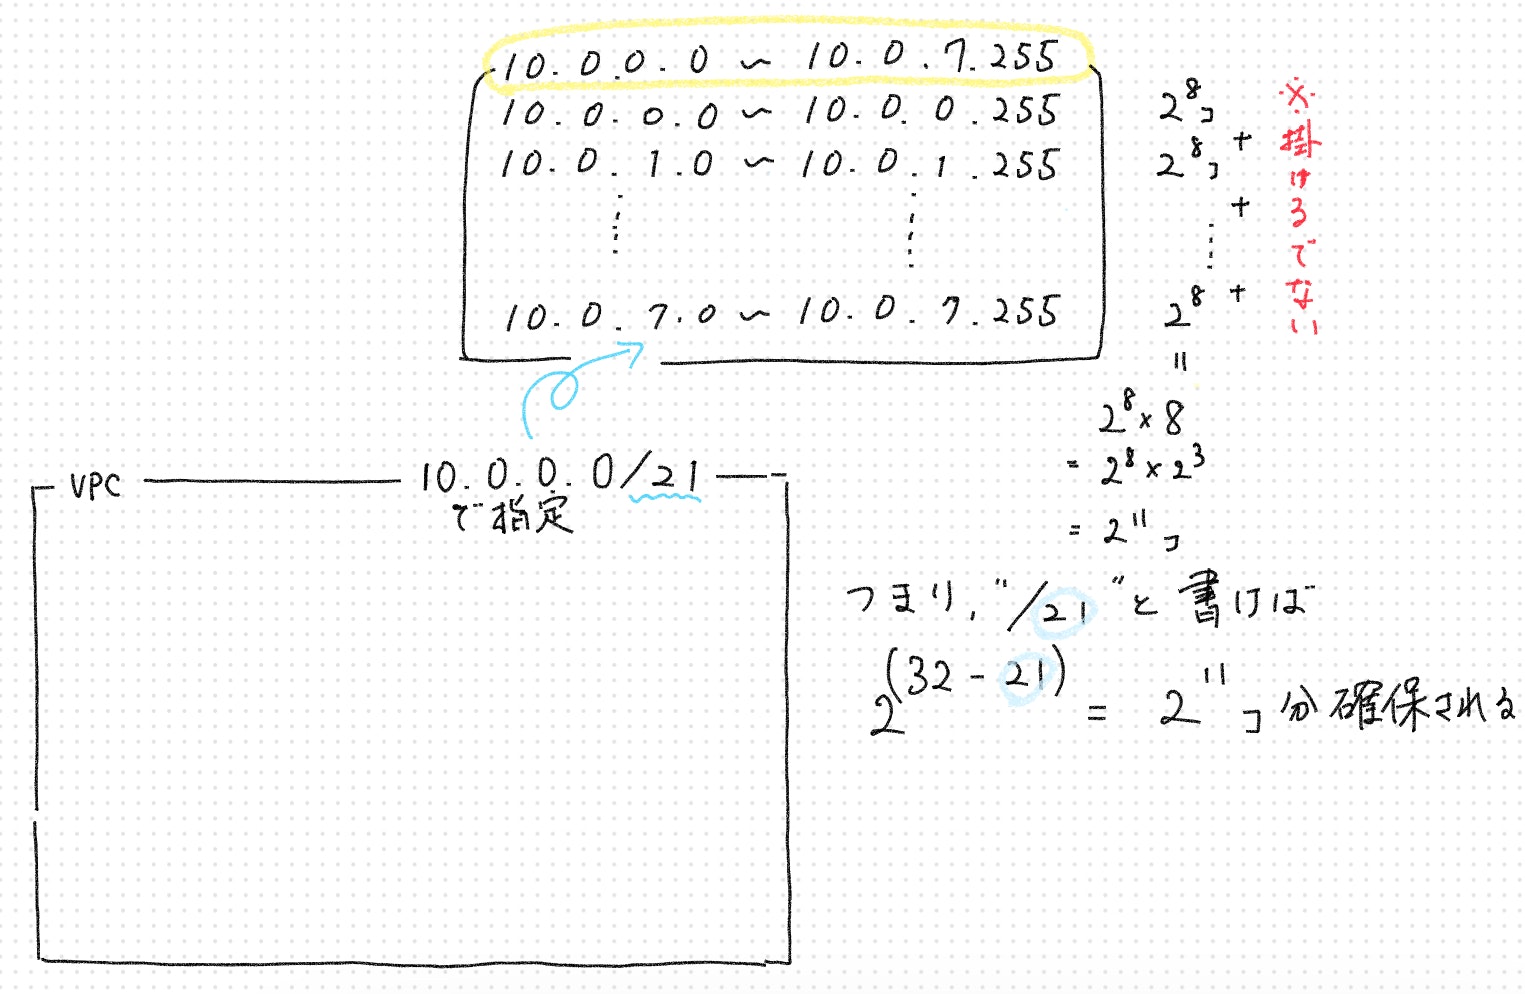 10.0.0.0 ~ 10.0.7.255
10.0.0.0 ~ 10.0.0.255
10.0.1.0 ~ 10.0.1.255
10.0.7.0 ~ 10.0.7.255
2⁸コ
+
2⁸コ
+
2⁸ +
=
2⁸×8
= 2⁸×2³
= 2¹¹コ
※掛けるでない
VPC
10.0.0.0/21
で指定
つまり, "/21"と書けば
2^(32-21) = 2¹¹コ分確保される